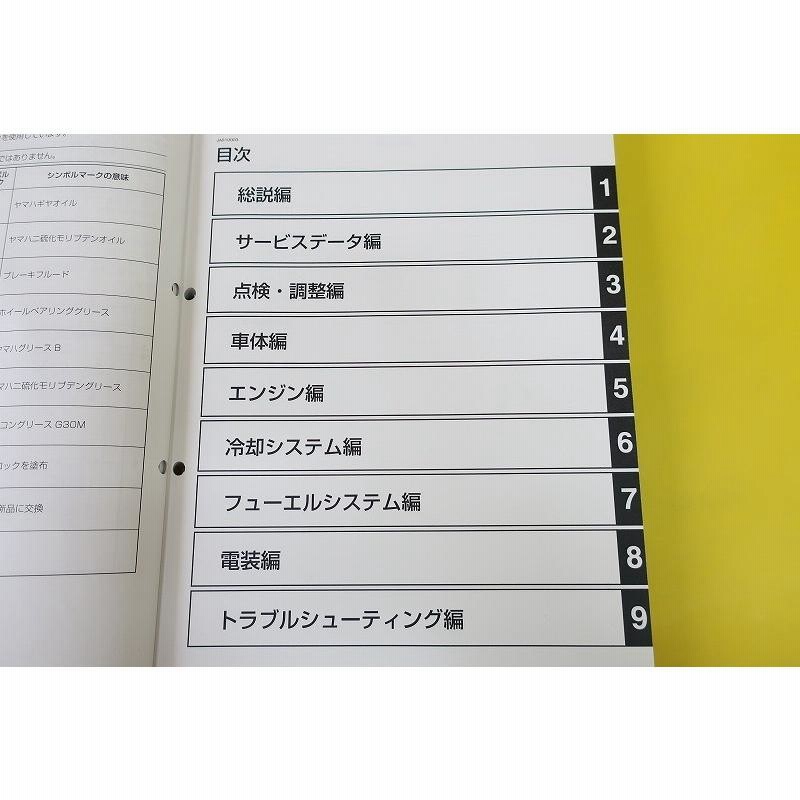 を使用しています。
ではありません。
シンボルマークの意味
ヤマハギヤオイル
ヤマハ二硫化モリブデンオイル
ブレーキフルード
ホイールベアリンググリース
ヤマハグリース B
マハ二硫化モリブデングリース
コングリース G30M
ロックを塗布
新品に交換
目次
総説編 1
サービスデータ編 2
点検・調整編 3
車体編 4
エンジン編 5
冷却システム編 6
フューエルシステム編 7
電装編 8
トラブルシューティング編 9